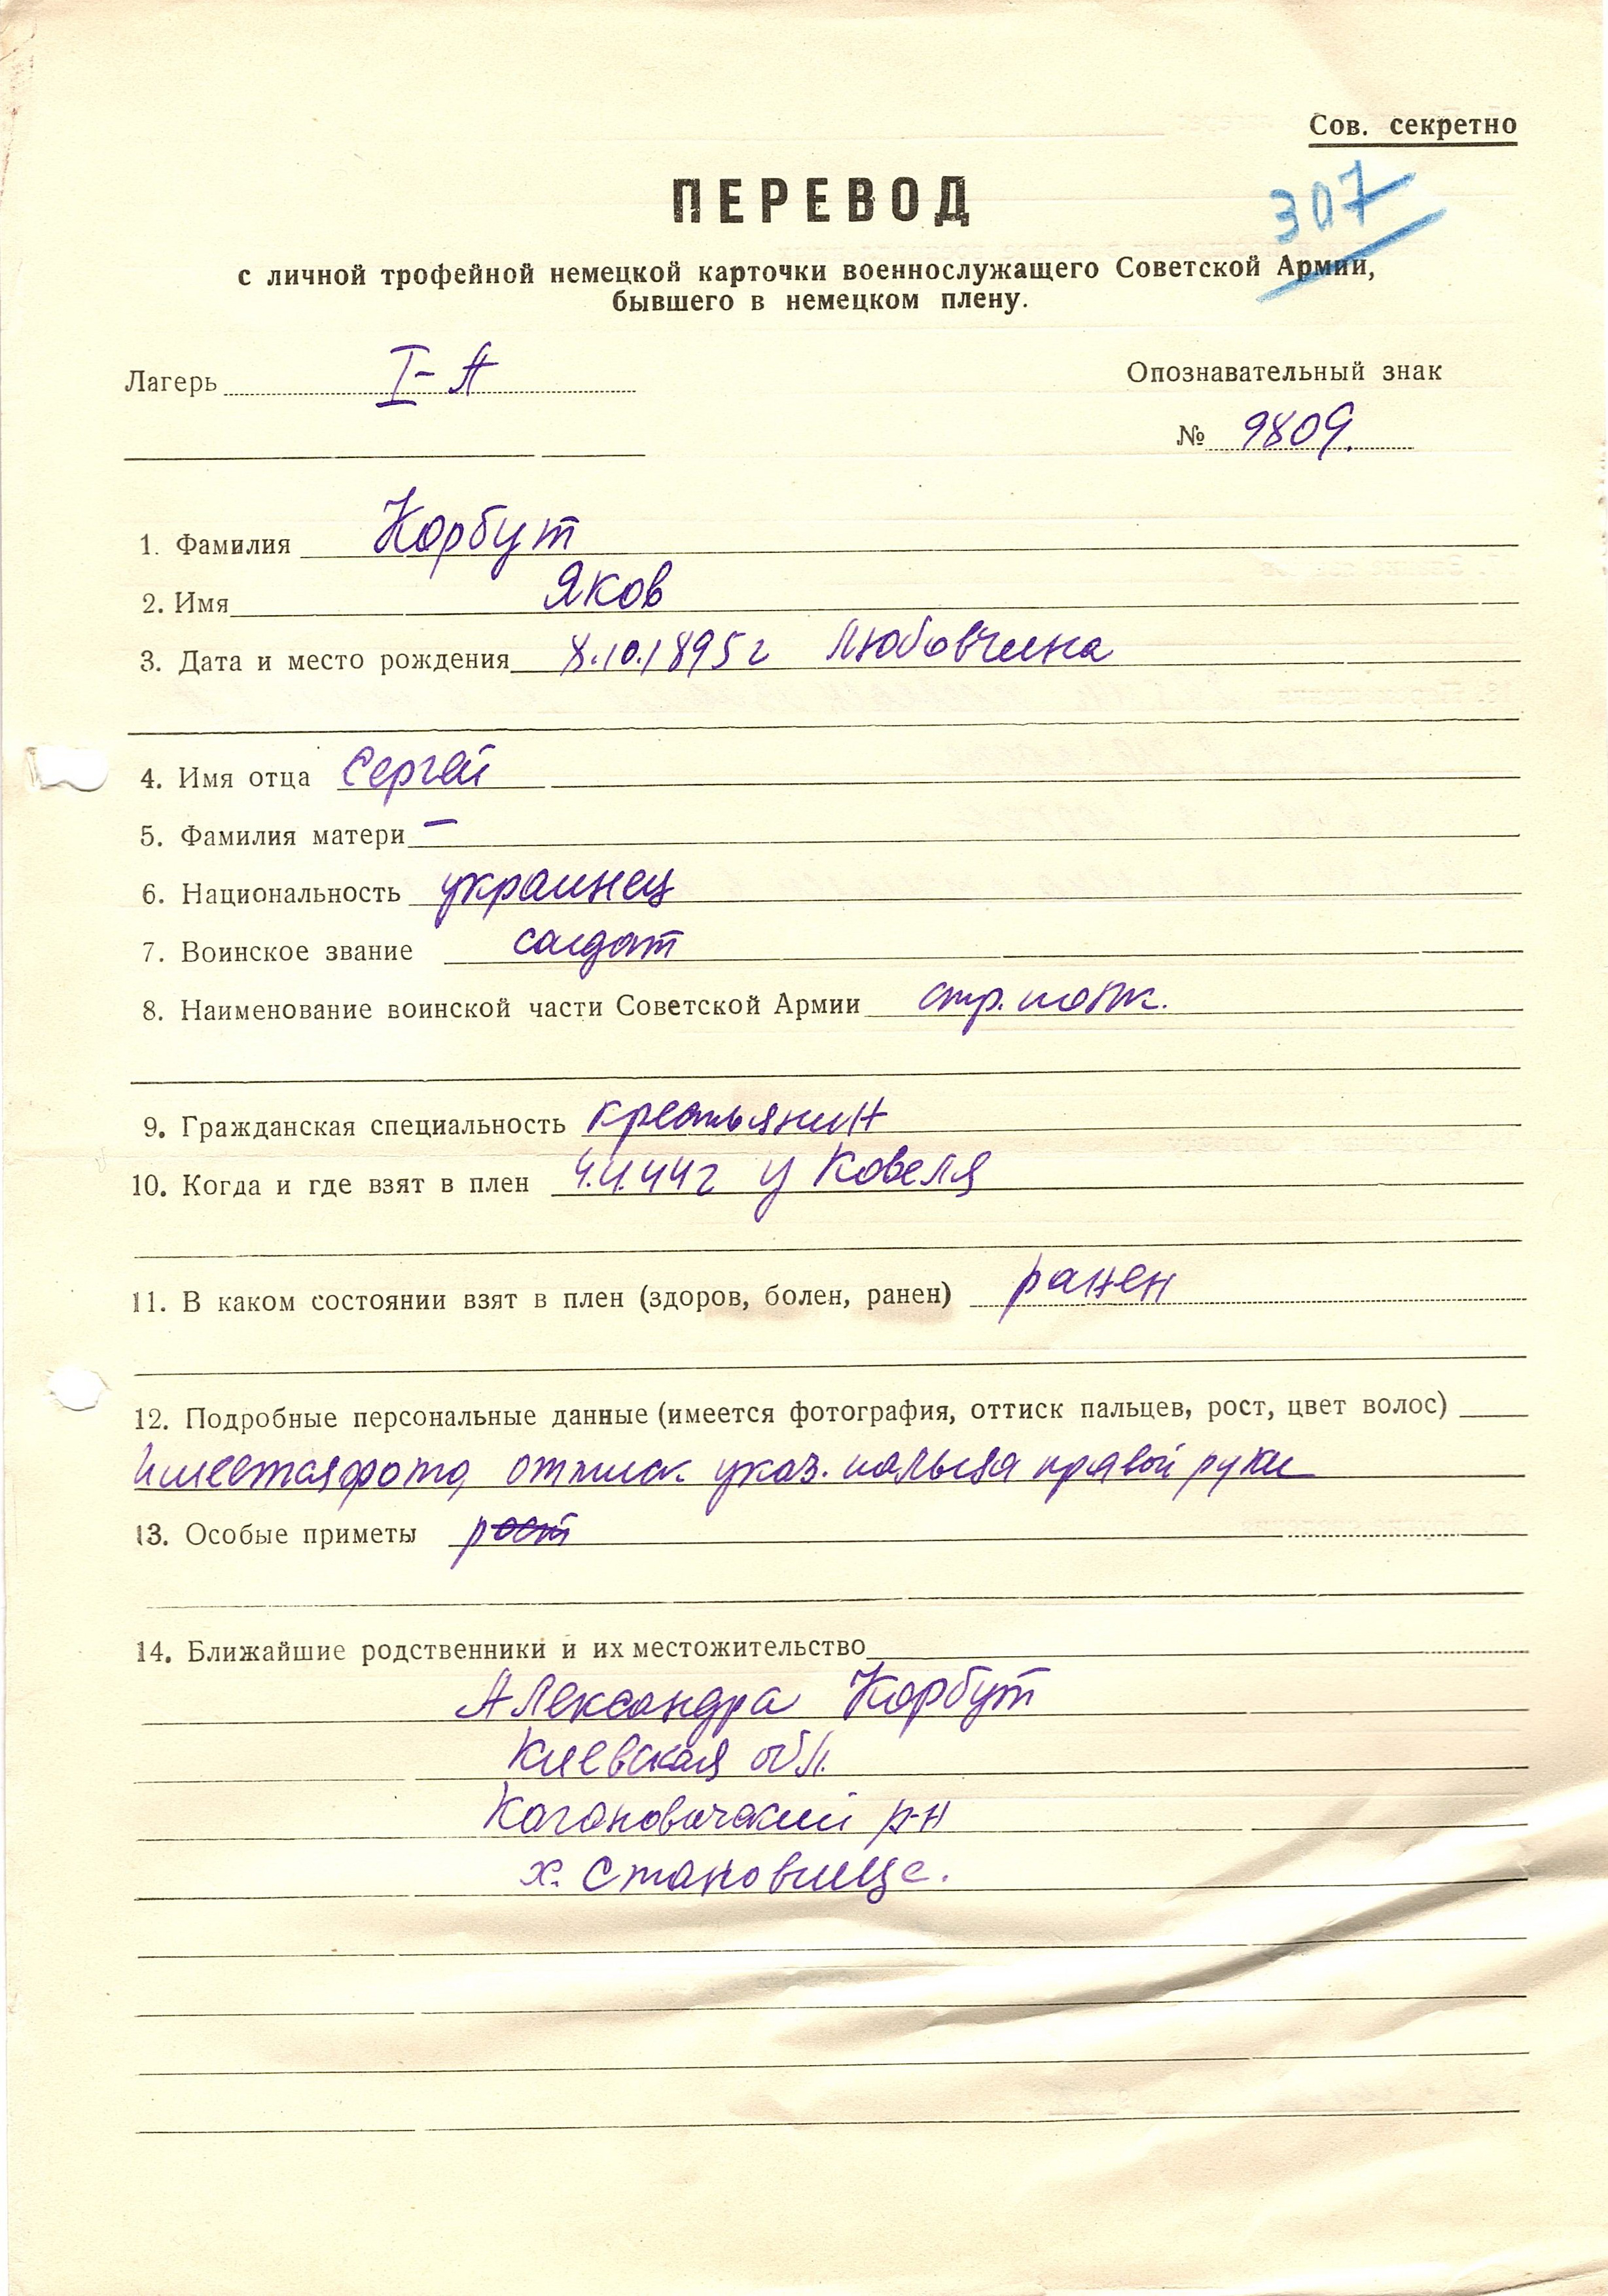 Сов. секретно
307
ПЕРЕВОД
с личной трофейной немецкой карточки военнослужащего Советской Армии,
бывшего в немецком плену.
Лагерь I-А
Опознавательный знак
№ 9809.
1. Фамилия Корбут
2. Имя Яков
3. Дата и место рождения 8.10.1895г Любовчина
4. Имя отца Сергей
5. Фамилия матери —
6. Национальность украинец
7. Воинское звание солдат
8. Наименование воинской части Советской Армии стр. полк.
9. Гражданская специальность крестьянин
10. Когда и где взят в плен 4.4.44г у Ковеля
11. В каком состоянии взят в плен (здоров, болен, ранен) ранен
12. Подробные персональные данные (имеется фотография, оттиск пальцев, рост, цвет волос)
Имеется фото, оттиск указ. пальца правой руки
13. Особые приметы рост
14. Ближайшие родственники и их местожительство
Александра Корбут
Киевская обл.
Кагановичский р-н
х. Становище.